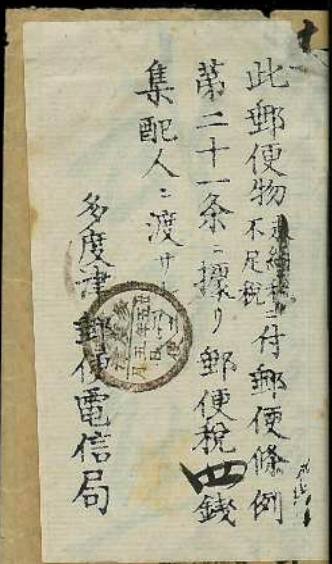 此郵便物不足税ニ付郵便條例
第二十一条ニ據リ郵便税四銭
集配人ニ渡サ
多度津郵便電信局